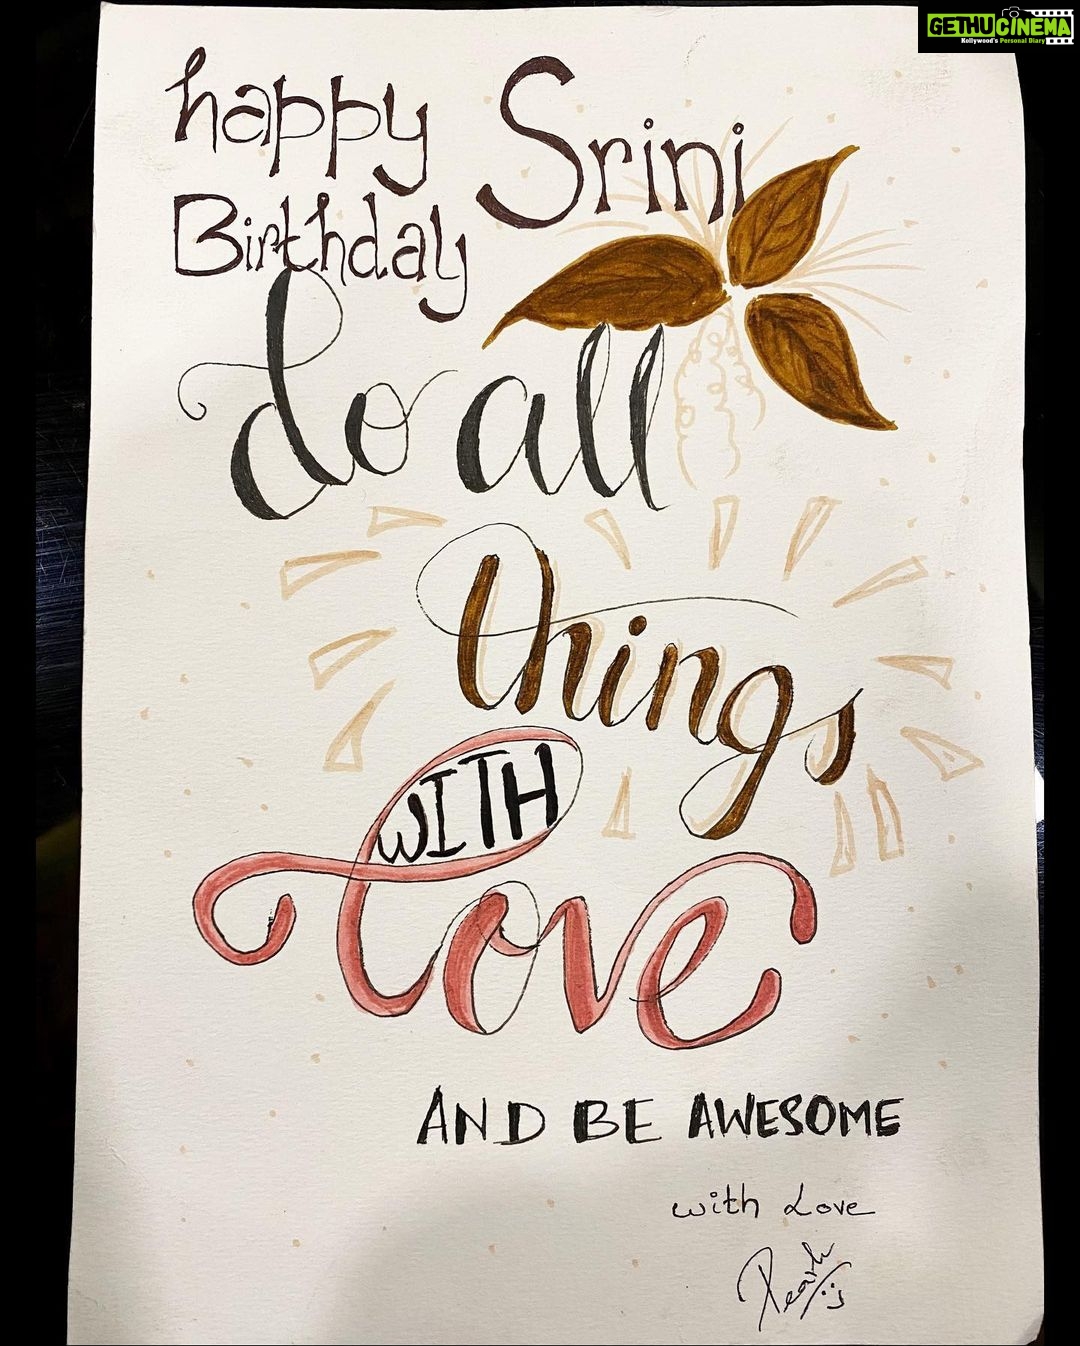 GETHUCINEMA
Kollywood's Personal Diary
happy Srini
Birthday
do all
things
WITH
Love
AND BE AWESOME
with Love